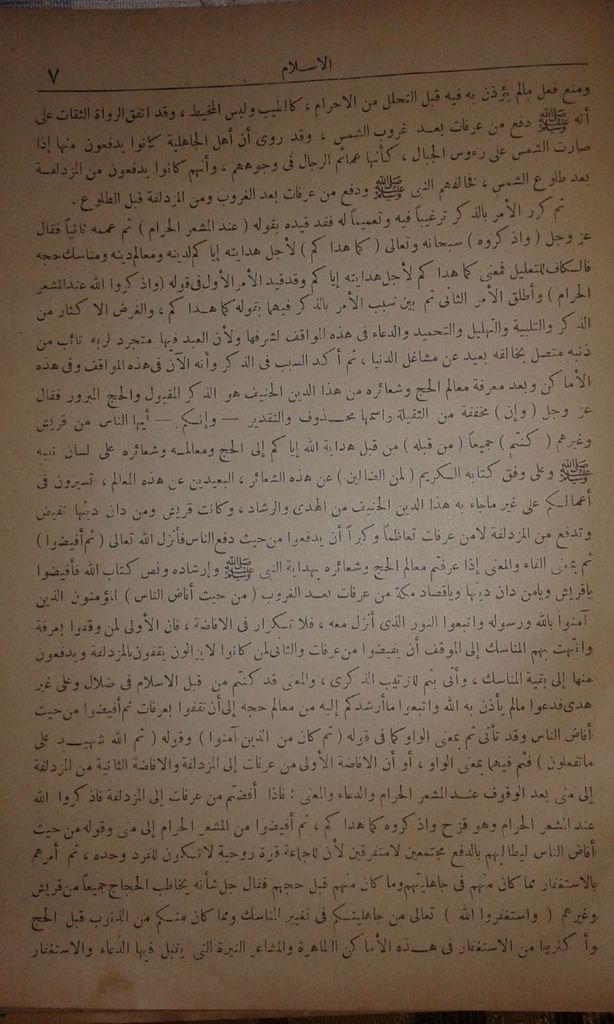 الاسلام
٧
ومنع فعل مالم يؤذن به فيه قبل التحلل من الاحرام ، كالطيب ولبس المخيط ، وقد اتفق الرواة الثقات على
أنه ﷺ دفع من عرفات بعد غروب الشمس ، وقد روى أن أهل الجاهلية كانوا يدفعون منها إذا
صارت الشمس على رءوس الجبال ، كأنها عمائم الرجال فى وجوههم ، وأنهم كانوا يدفعون من المزدلفة
بعد طلوع الشمس ، فخالفهم النبى ﷺ ودفع من عرفات بعد الغروب ومن المزدلفة قبل الطلوع .
ثم كرر الأمر بالذكر ترغيباً فيه وتعميماً له فقد قيده بقوله ( عند المشعر الحرام ) ثم عممه ثانياً فقال
عز وجل ( واذكروه ) سبحانه وتعالى ( كما هداكم ) لأجل هدايته إياكم لدينه ومعالم دينه ومناسك حجه
فالكاف للتعليل فمعنى كما هداكم لأجل هدايته إياكم وقد قيد الأمر الأول فى قوله ( واذكروا الله عند المشعر
الحرام ) وأطلق الأمر الثانى ثم بين سبب الأمر بالذكر فيهما بقوله كما هداكم ، والغرض الاكثار من
الذكر والتلبية والتهليل والتحميد والدعاء فى هذه المواقف لشرفها ولأن العبد فيها متجرد لربه تائب من
ذنبه متصل بخالقه بعيد عن مشاغل الدنيا ، ثم أكد السبب فى الذكر وأنه الآن فى هذه المواقف وفى هذه
الأماكن وبعد معرفة معالم الحج وشعائره من هذا الدين الحنيف هو الذكر المقبول والحج المبرور فقال
عز وجل ( وإن ) مخففة من الثقيلة واسمها محذوف والتقدير — وإنكم — أيها الناس من قريش
وغيرهم ( كنتم ) جميعاً ( من قبله ) من قبل هداية الله إياكم إلى الحج ومعالمه وشعائره على لسان نبيه
ﷺ وعلى وفق كتابه الكريم ( لمن الضالين ) عن هذه الشعائر ، البعيدين عن هذه المعالم ، تسيرون فى
أعمالكم على غير ماجاء به هذا الدين الحنيف من الهدى والرشاد ، وكانت قريش ومن دان دينها تفيض
وتدفع من المزدلفة لامن عرفات تعاظماً وكبراً أن يدفعوا من حيث دفع الناس فأنزل الله تعالى ( ثم أفيضوا )
ثم بمعنى الفاء والمعنى إذا عرفتم معالم الحج وشعائره بهداية النبى ﷺ وإرشاده ونص كتاب الله فأفيضوا
ياقريش ويامن دان دينها وياقصاد مكة من عرفات بعد الغروب ( من حيث أفاض الناس ) المؤمنون الذين
آمنوا بالله ورسوله واتبعوا النور الذى أنزل معه ، فلا تكرار فى الافاضة ، فان الأولى لمن وقفوا بعرفة
وانتهت بهم المناسك إلى الموقف أن يفيضوا من عرفات والثانى لمن كانوا لايزالون يقفون بالمزدلفة ويدفعون
منها إلى بقية المناسك ، وأتى بثم للترتيب الذكرى ، والمعنى قد كنتم من قبل الاسلام فى ضلال وعلى غير
هدى فدعوا مالم يأذن به الله واتبعوا ماأرشدكم إليه من معالم حجه إلى أن تقفوا بعرفات ثم أفيضوا من حيث
أفاض الناس وقد تأتى ثم بمعنى الواو كما فى قوله ( ثم كان من الذين آمنوا ) وقوله ( ثم الله شهيد على
ماتفعلون ) فثم فيهما بمعنى الواو ، أو أن الافاضة الأولى من عرفات إلى المزدلفة والافاضة الثانية من المزدلفة
إلى منى بعد الوقوف عند المشعر الحرام والدعاء والمعنى : فاذا أفضتم من عرفات إلى المزدلفة فاذكروا الله
عند المشعر الحرام وهو قزح واذكروه كما هداكم ، ثم أفيضوا من المشعر الحرام إلى منى وقوله من حيث
أفاض الناس ليطالبهم بالدفع مجتمعين لامتفرقين لأن للجماعة قوة روحية لاتكون للفرد وحده ، ثم أمرهم
بالاستغفار مما كان منهم فى جاهليتهم وما كان منهم قبل حجهم فقال جل شأنه يخاطب الحجاج جميعاً من قريش
وغيرهم ( واستغفروا الله ) تعالى من جاهليتكم فى تغيير المناسك ومما كان منكم من الذنوب قبل الحج
وأكثروا من الاستغفار فى هذه الأماكن الطاهرة والمشاعر النيرة التى يتقبل فيها الدعاء والاستغفار